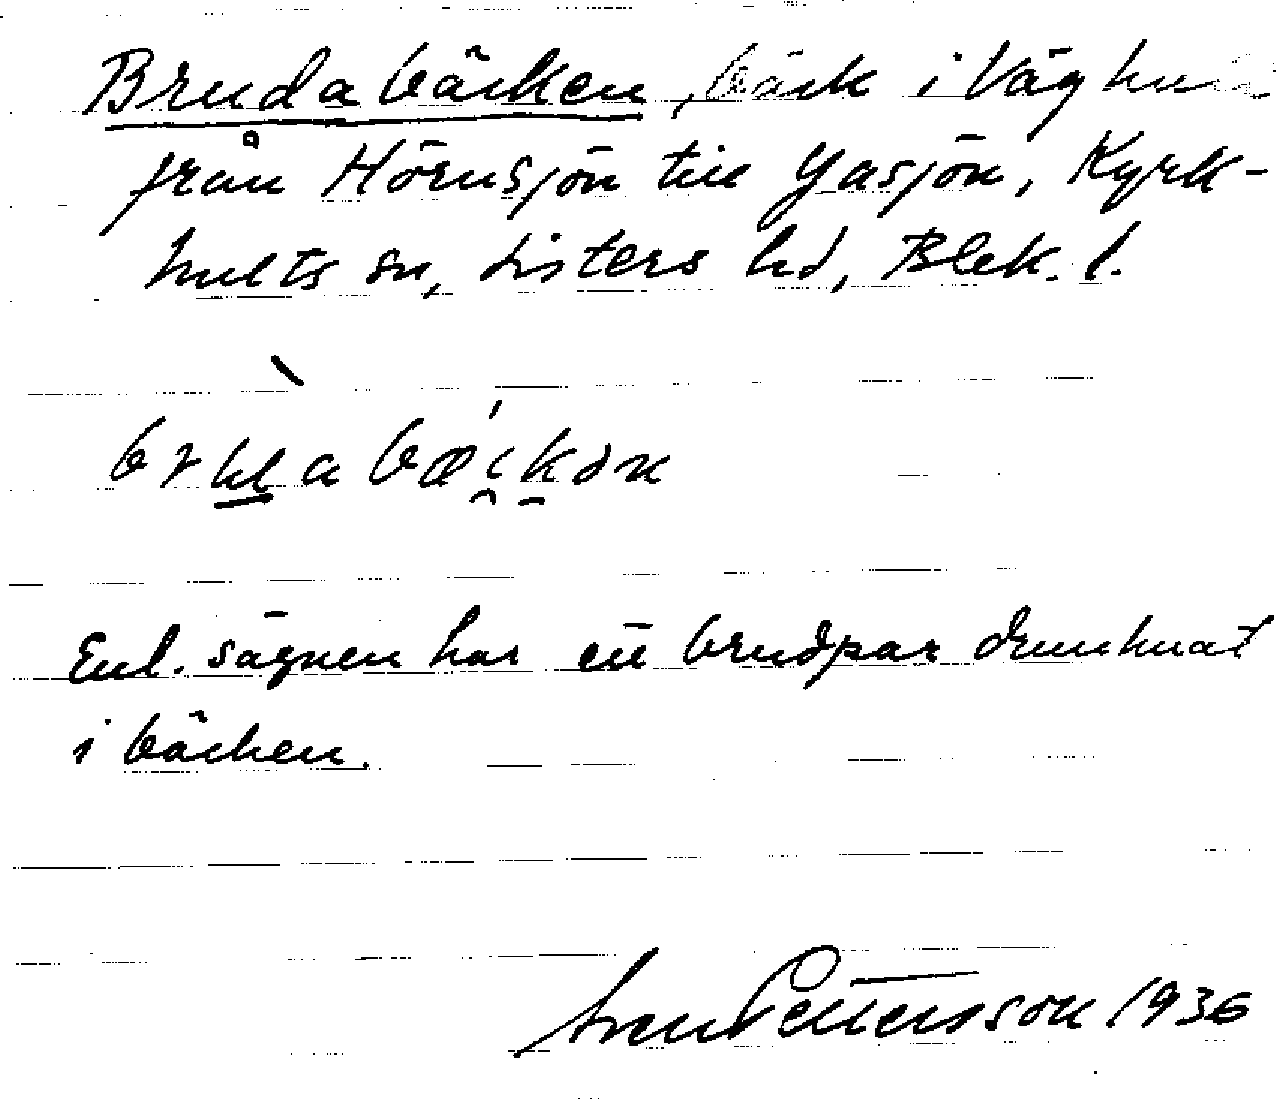 Brudabäcken, bäck i Väghult
från Hörnsjön till Gasjön, Kyrk-
hults sn, Listers hd, Blek. l.
Enl. sägnen har ett brudpar drunknat
i bäcken.
Sven Pettersson 1936